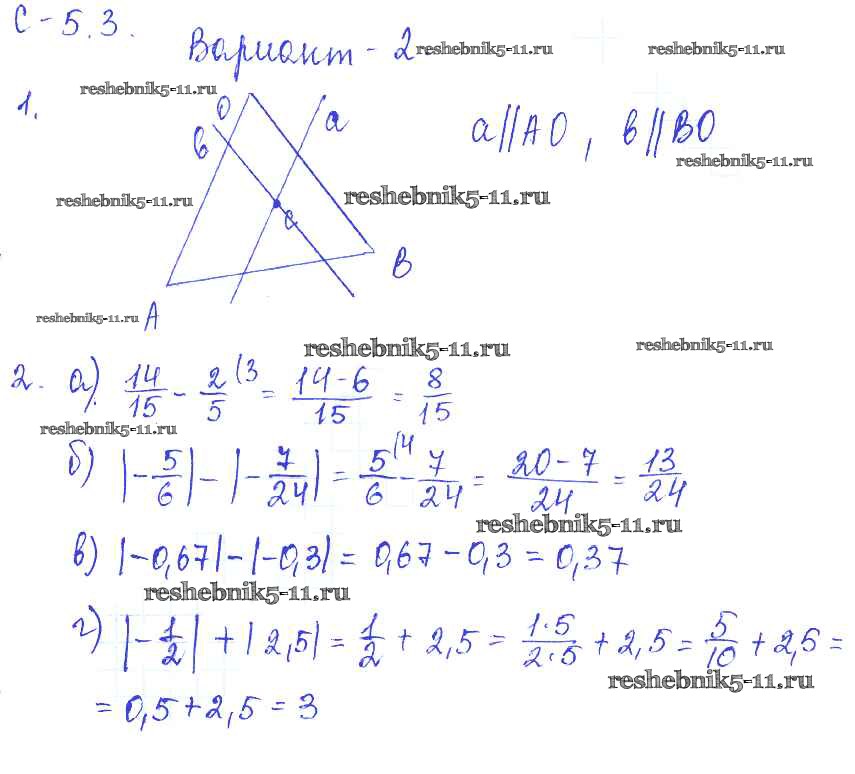 С-5.3.
Вариант-2 reshebnik5-11.ru reshebnik5-11.ru
reshebnik5-11.ru
1. O a a||AO, в||BO
в
reshebnik5-11.ru
reshebnik5-11.ru reshebnik5-11.ru
c
B
reshebnik5-11.ru A
reshebnik5-11.ru reshebnik5-11.ru
2. а) 14/15 - 2/5 (3 = 14-6/15 = 8/15
reshebnik5-11.ru
б) |-5/6| - |-7/24| = 5/6 (4 - 7/24 = 20-7/24 = 13/24
reshebnik5-11.ru
в) |-0,67| - |-0,3| = 0,67 - 0,3 = 0,37
reshebnik5-11.ru
г) |-1/2| + |2,5| = 1/2 + 2,5 = 1·5/2·5 + 2,5 = 5/10 + 2,5 =
reshebnik5-11.ru
= 0,5 + 2,5 = 3